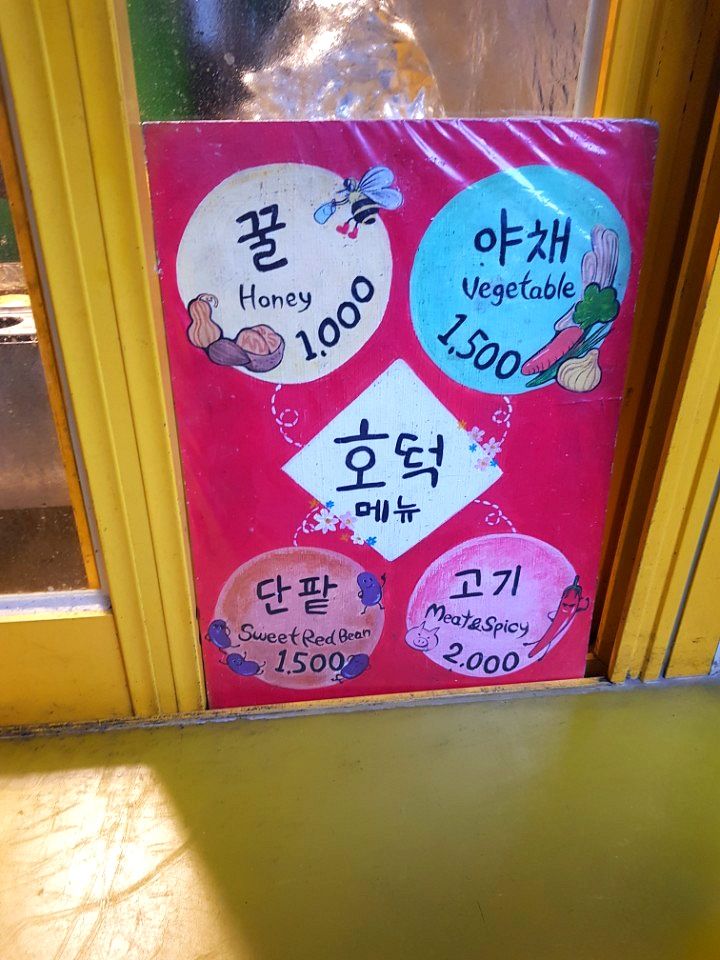 꿀
Honey
1,000
야채
Vegetable
1,500
호떡
메뉴
단팥
Sweet Red Bean
1,500
고기
Meat & Spicy
2,000